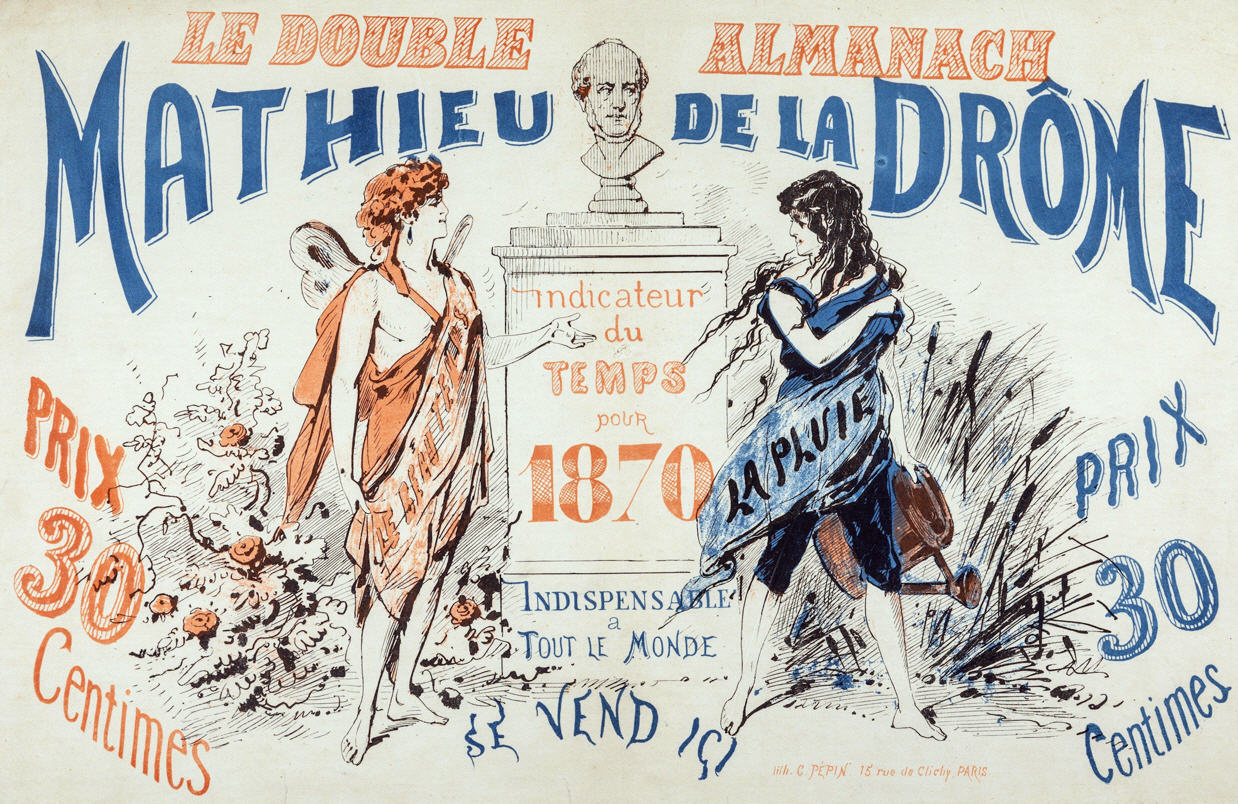 LE DOUBLE ALMANACH
MATHIEU DE LA DRÔME
indicateur
du
TEMPS
pour
1870
LA PLUIE
PRIX
30
Centimes
PRIX
30
Centimes
INDISPENSABLE
a
TOUT LE MONDE
SE VEND IÇI
lith. C. PÉPIN 15 rue de Clichy, PARIS